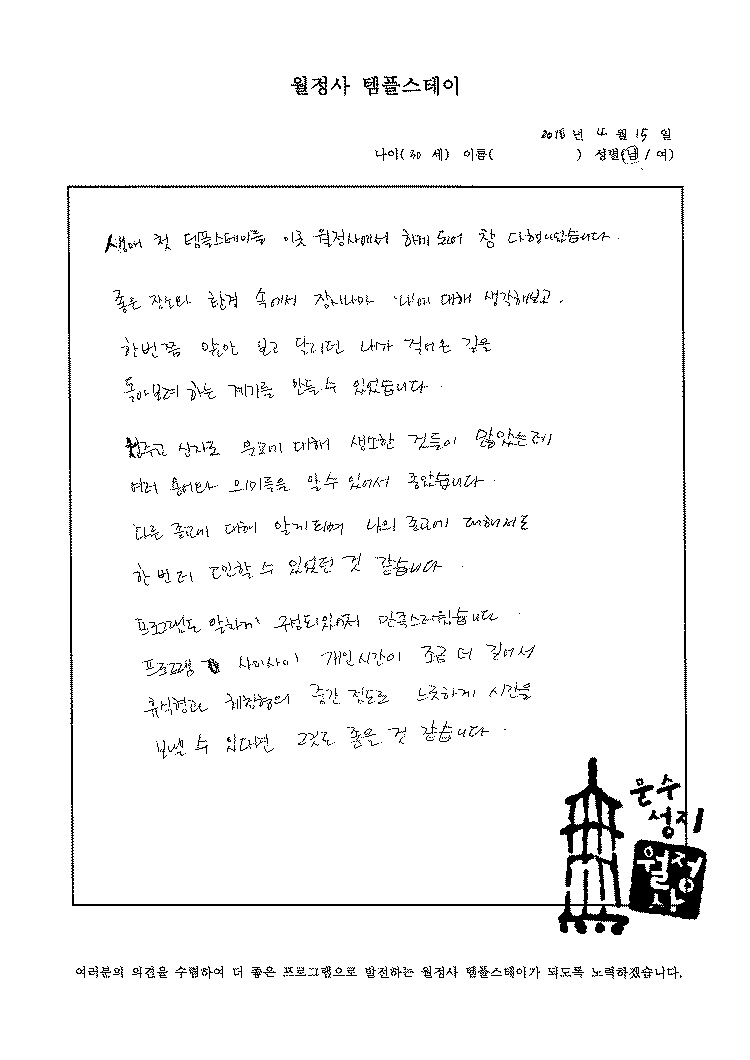 월정사 템플스테이
2018 년 4 월 15 일
나이( 30 세) 이름( ) 성별(남 / 여)
생애 첫 템플스테이를 이곳 월정사에서 하게 되어 참 다행이었습니다.
좋은 장소와 환경 속에서 잠시나마 '나'에 대해 생각해보고,
한번쯤 앞만 보고 달리던 내가 걸어온 길을
돌아보려 하는 계기를 만들 수 있었습니다.
대해 생소한 것들이 많았는데
여러 용어와 의미들을 알 수 있어서 좋았습니다.
다른 종교에 대해 알게되며 나의 종교에 대해서도
한 번 더 확인할 수 있었던 것 같습니다.
프로그램도 알차게 구성되있어서 만족스러웠습니다
프로그램 사이사이 개인시간이 조금 더 길어서
휴식형과 체험형의 중간 정도로 느긋하게 시간을
보낼 수 있다면 그것도 좋을 것 같습니다.
문수
성지
월정
사
여러분의 의견을 수렴하여 더 좋은 프로그램으로 발전하는 월정사 템플스테이가 되도록 노력하겠습니다.